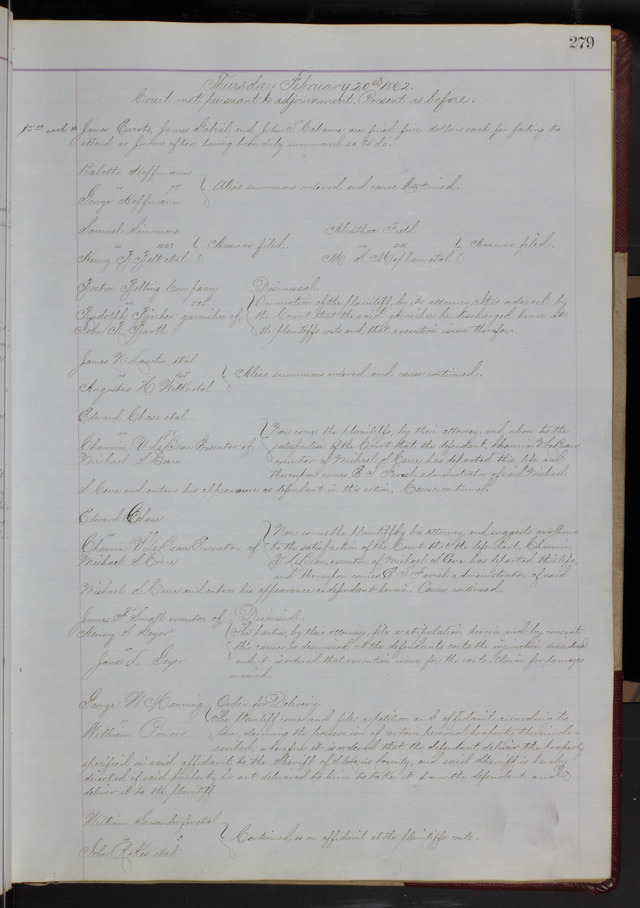 279
Thursday February 20th 1862.
Court met pursuant to adjournment. Present as before.
$5.00 each
James Evarts, James Gabriel and John T. Cabanne are fined five dollars each for failing to
attend as Jurors after being been duly summoned so to do.
Babette Hoffmann
vs 75 Alias summons ordered and cause Continued.
George Hoffmann
Samuel Simmons
vs Answer filed.
Henry R Belt et al
Abiathar Field
vs Answer filed.
M S Mepham et al
Boston Belting Company
vs
Rudolph Bircher garnishee of
John F. Barth
Dismissal.
On motion of the plaintiff by its attorney it is ordered by
the Court that the said garnishee be discharged hence at
the plaintiffs costs and that execution issue therefor.
James W Lawton et al
vs Alias summons ordered and cause continued.
Augustus H. Witte et al
Edward Chase et al
vs
Chauvin V LeBeau Executor of
Michael S Cerre
Now come the plaintiffs, by their attorney, and show to the
satisfaction of the Court that the defendant, Chauvin V LeBeau
executor of Michael S Cerre has departed this life and
thereupon comes B T Farish administrator of said Michael
S Cerre and enters his appearance as defendant in this action, Cause continued.
Edward Chase
vs
Chauvin V LeBeau Executor of
Michael S Cerre
Now comes the plaintiff by his attorney, and suggests and shows
to the satisfaction of the Court that the defendant, Chauvin
V LeBeau executor of Michael S Cerre has departed this life
and thereupon comes B T Farish administrator of said
Michael S Cerre and enters his appearance as defendant herein. Cause continued.
James F Small executor of
Henry S Geyer
vs
Jane L Geyer
Dismissal.
The parties, by their attorneys, file a stipulation herein and by consent
this cause is dismissed at the defendants costs the injunction dissolved
and it is ordered that execution issue for the costs. Claim for damages
waived.
George W Manning
vs
William Powers
Order for Delivery.
The plaintiff comes and files a petition and affidavit according to
law, claiming the possession of certain personal property, therein des-
cribed; wherefore it is ordered that the defendant deliver the property
specified in said affidavit to the Sheriff of St Louis County, and said Sheriff is hereby
directed if said property be not delivered to him to take it from the defendant and
deliver it to the plaintiff.
William et al
vs Continued on affidavit at the plaintiffs costs.
John et al